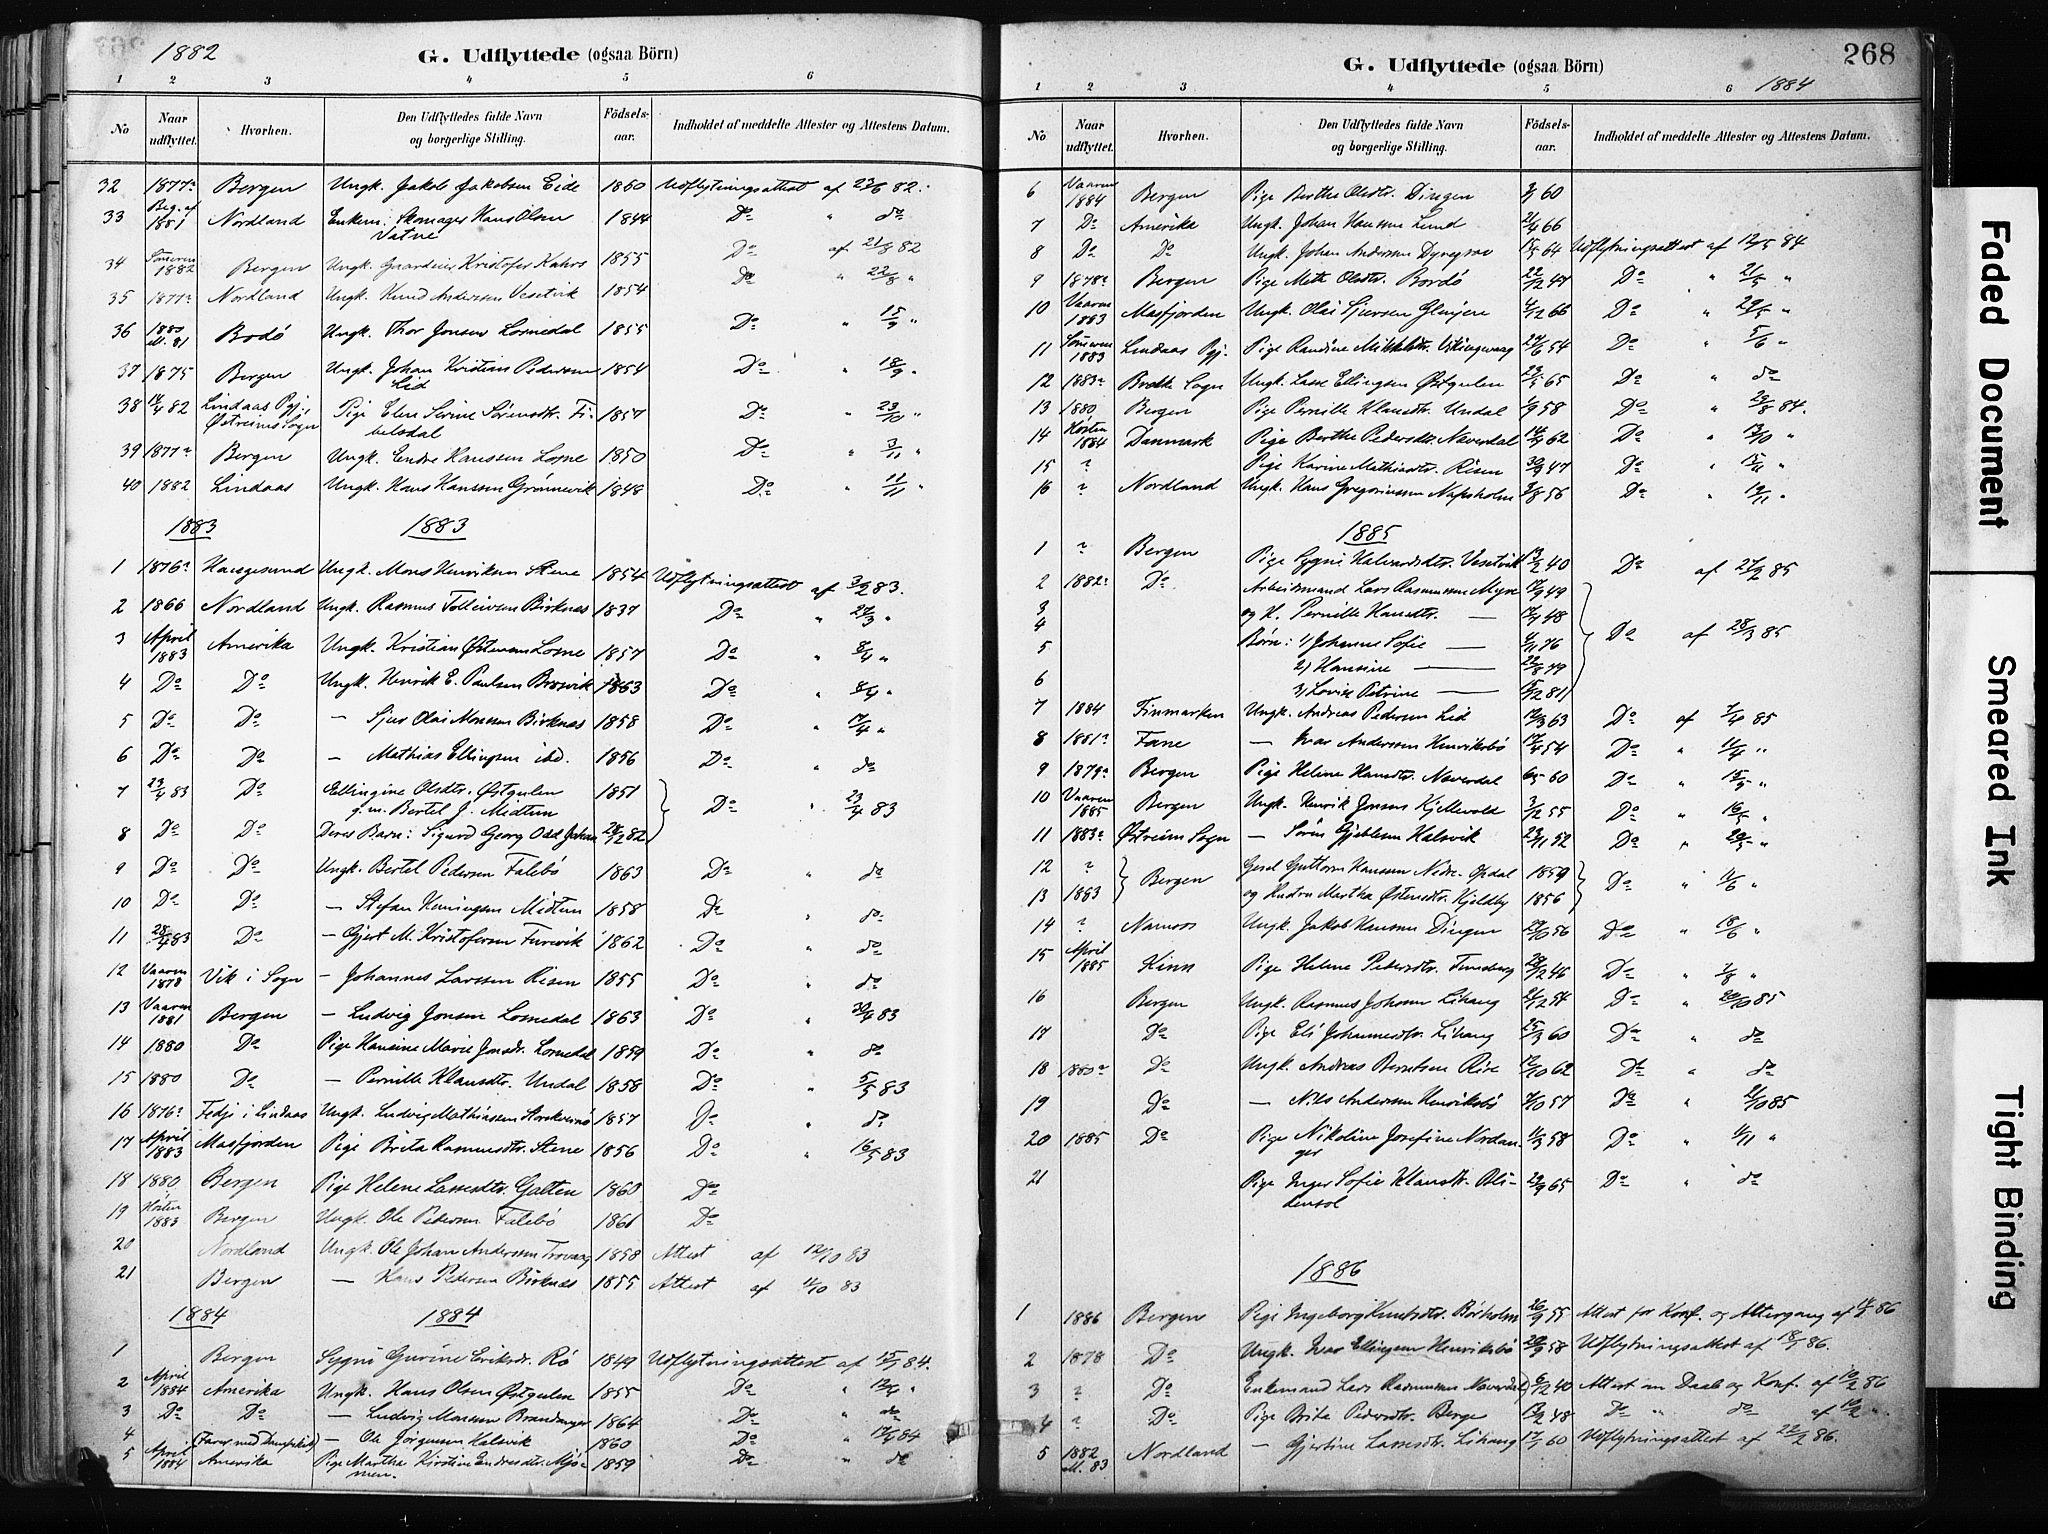 1882
G. Udflyttede (ogsaa Börn)
1 2 3 4 5 6
No Naar udflyttet. Hvorhen. Den Udflyttedes fulde Navn og borgerlige Stilling. Födsels-aar. Indholdet af meddelte Attester og Attestens Datum.
32 1877? Bergen Ungk. Jakob Jakobsen Eide 1860 Udflytningsattest af 23/6 82.
33 Beg. af 1881 Nordland Enkem. Skomager Hans Olsen Vatne 1844 Do " do
34 Somren 1882 Bergen Ungk. Gaardens Kristofer Kahrs 1855 Do af 21/7 82
35 1877? Nordland Ungk. Knud Andersen Vesetvik 1854 Do " 22/8 "
36 1880 el. 81 Bodö Ungk. Thor Jonsen Losnedal 1855 Do " 15/9 "
37 1875 Bergen Ungk. Johan Kristian Pedersen Lid 1854 Do " 18/9 "
38 14/4 82 Lindaas Pgj., Østreims Sogn Pige Elen Serine Sörensdtr. Fi-belsdal 1857 Do " 23/10 "
39 1877? Bergen Ungk. Endre Hanssen Losne 1850 Do " 3/11 "
40 1882 Lindaas Ungk. Hans Hanssen Grönnevik 1848 Do " 11/11 "
1883 1883
1 1876? Haugesund Ungk. Mons Henriksen Stene 1854 Udflytningsattest af 3/2 83.
2 1866 Nordland Ungk. Rasmus Tolleivsen Birknæs 1837 Do " 27/3 "
3 April 1883 Amerika Ungk. Kristian Østensen Losne 1857 Do " 8/4 "
4 Do Do Ungk. Henrik E. Paulsen Brosvik 1863 Do " 8/4 "
5 Do Do — Sjur Olai Monsen Birknæs 1858 Do " 17/4 "
6 Do Do — Mathias Ellingsen ibd. 1856 Do " do
7 23/4 83 Do Ellingine Olsdtr. Østgulen g.m. Bertel J. Midtun 1851 Do " 23/4 83
8 Do Do Deres Barn: Sigurd Georg Odd Johan 28/2 82
9 Do Do Ungk. Bertel Pedersen Falebö 1863 Do " do
10 Do Do — Stefan Heningsen Midtun 1858 Do " do
11 28/4 83 Do — Gjert M. Kristofersen Furevik 1862 Do " do
12 Vaaren 1878 Vik i Sogn — Johannes Larssen Risen 1855 Do " do
13 Vaaren 1881 Bergen — Ludvig Jonsen Losnedal 1863 Do " 30/4 83
14 1880 Do Pige Hansine Marie Jonsdr. Losnedal 1859 Do " do
15 1880 Do — Pernille Klausdtr. Undal 1858 Do " 5/5 83
16 1876? Fedje i Lindaas Ungk. Ludvig Mathiassen Storekversö 1857 Do " do
17 April 1883 Masfjorden Pige Brita Rasmusdtr. Stene 1856 Do " 16/5 83
18 1880 Bergen Pige Helene Lassesdtr. Galten 1860 Do
19 Hösten 1883 Bergen Ungk. Ole Pedersen Falebö 1861 Do
20 Nordland Ungk. Ole Johan Andersen Trovaag 1858 Attest af 12/10 83
21 Bergen — Hans Pedersen Birknæs 1855 Attest af 11/10 83
1884 1884
1 Bergen Sygni Gurine Eriksdr. Rö 1849 Udflytningsattest af 15/1 84.
2 April 1884 Amerika Ungk. Hans Olsen Østgulen 1855 Do " 12/4 "
3 Do Do — Ludvig Monsen Brandanger 1864 Do " do
4 (Farer med Dampskib) — Ole Jörgensen Halsvik 1860 Do " 17/4 84
5 April 1884 Amerika Pige Martha Kirstine Endresdtr. Mjö-men. 1859 Do " do
268
G. Udflyttede (ogsaa Börn)
1884
1 2 3 4 5 6
No Naar udflyttet. Hvorhen. Den Udflyttedes fulde Navn og borgerlige Stilling. Födsels-aar. Indholdet af meddelte Attester og Attestens Datum.
6 Vaaren 1884 Bergen Pige Berthe Olsdtr. Dingen 60
7 Do Amerika Ungk. Johan Hansen Lund 21/4 66
8 Do Do Ungk. Johan Andersen Dyregrov 15/5 64 Udflytningsattest af 12/5 84
9 1878? Bergen Pige Mette Olsdtr. Bordö 22/2 47 Do " 21/5 "
10 Vaaren 1883 Masfjorden Ungk. Olai Sjursen Glenjen 4/12 66 Do " 29/5 "
11 Somren 1883 Lindaas Pgj. Pige Randine Mikkelsdtr. Vikingevaag 24/6 54 Do " 5/6 "
12 1883? Brekke Sogn Ungk. Lasse Ellingsen Østgulen 23/5 65 Do " do
13 1880 Bergen Pige Pernille Klausdtr. Undal 1/9 58 Do " 23/8 84.
14 Hösten 1884 Danmark Pige Berthe Pedersdtr. Naverdal 14/9 62 Do " 13/10 "
15 ? Pige Karine Mathiasdtr. Risen 30/9 47 Do " 15/11 "
16 ? Nordland Ungk. Hans Gregoriussen Napsholm 3/8 56 Do " 19/11 "
1885
1 ? Bergen Pige Sygni Halvardsdtr. Vesetvik 13/2 40 Do af 27/2 85
2 1882? Do Arbeidsmand Lars Rasmussen Myre 17/9 49
3 og H. Pernille Hansdtr. — 17/4 48
4 Börn: 1) Johanne Sofie — 4/11 76 Do af 28/3 85
5 2) Hansine — 22/8 79
6 3) Lovise Petrine — 15/12 81
7 1884 Finmarken Ungk. Andreas Pedersen Lid 12/3 63 Do af 7/4 85
8 1881? Fane — Ivar Andersen Henriksbö 17/4 54 Do " 11/4 "
9 1879? Bergen Pige Helene Hansdtr. Naverdal 6/5 60 Do " "
10 Vaaren 1885 Bergen Ungk. Henrik Jonsen Kjellevold 3/12 55 Do " 16/5 "
11 1883? Østreim Sogn — Sören Gjeblesen Halsvik 23/11 52 Do " 20/5 "
12 ? Bergen Gesel Guttorm Hansen Nedre-Opdal 1859 Do " 11/6 "
13 1883 og Hustru Martha Østensdtr. Kjeldby 1856
14 ? Namsos Ungk. Jakob Hansen Dingen 29/10 56 Do " 18/6 "
15 April 1885 Kinn Pige Helene Pedersdtr. Tunsberg 28/12 46 Do " 1/8 "
16 Bergen Ungk. Rasmus Johansen Lihaug 21/12 54 Do " 20/10 85
17 Do Pige Eli Johannesdtr. Lihaug 25/3 60 Do " do
18 1880? Do Ungk. Andreas Berntsen Rise 12/10 62 Do " do
19 Do — Nils Andersen Henriksbö 7/10 57 Do " 21/10 85
20 1885 Do Pige Nikoline Josefine Nordan-ger 11/3 58 Do " 4/11 "
21 Pige Inger Sofie Klausdtr. Bli-densol 29/9 65 Do " do
1886
1 1886 Bergen Pige Ingeborg Knutsdtr. Börholm 26/9 55 Attest for Konf. og Altergang af 14/1 86
2 1878 Do Ungk. Ivar Ellingsen Henriksbö 29/9 58 Udflytningsattest af 18/1 86.
3 ? Do Enkemand Lars Rasmussen Naverdal 6/12 40 Attest om Daab og Konf. af 10/2 86
4 ? Do Pige Brita Pedersdtr. Berge 13/2 48 Do " do af 10/2 ".
5 1882 el. 83 Nordland — Gjertine Lassesdtr. Lihaug 17/1 60 Udflytningsattest af 22/2 86.
Faded Document
Smeared Ink
Tight Binding